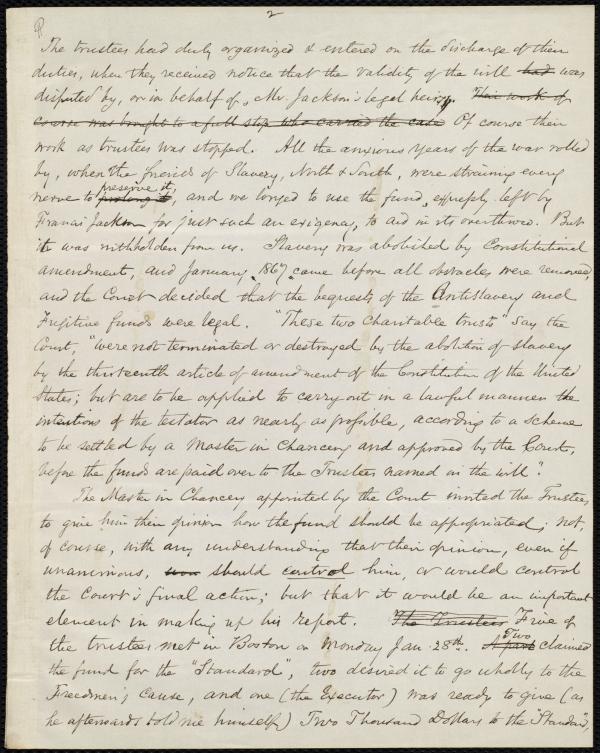 2
The trustees had duly organized & entered on the discharge of their
duties, when they received notice that the validity of the will had was
disputed by, or in behalf of, Mr. Jackson's legal heirs. Their work of
course was brought to a full stop who carried the case Of course their
work as trustees was stopped. All the anxious years of the war rolled
by, when the friends of Slavery, North & South, were straining every
nerve to prolong it preserve it, and we longed to use the fund, expressly left by
Francis Jackson for just such an exigency, to aid in its overthrow. But
it was withholden from us. Slavery was abolished by Constitutional
amendment, and January, 1867, came before all obstacles were removed,
and the Court decided that the bequests of the Antislavery and
Fugitive funds were legal. "These two Charitable trusts" say the
Court, "were not terminated or destroyed by the abolition of slavery
by the thirteenth article of amendment of the Constitution of the United
States; but are to be applied to carry out in a lawful manner the
intentions of the testator as nearly as possible, according to a scheme
to be settled by a Master in Chancery and approved by the Court,
before the funds are paid over to the Trustees named in the will".
The Master in Chancery appointed by the Court invited the Trustees,
to give him their opinion how the fund should be appropriated; not,
of course, with any understanding that their opinion, even if
unanimous, should control him, or would control
the Court's final action; but that it would be an important
element in making up his report. The Trustees Five of
the trustees met in Boston on Monday Jan. 28th. A part Two claimed
the fund for the "Standard", two desired it to go wholly to the
Freedmen's Cause, and one (the Executor) was ready to give (as
he afterwards told me himself) Two Thousand Dollars to the "Standard",